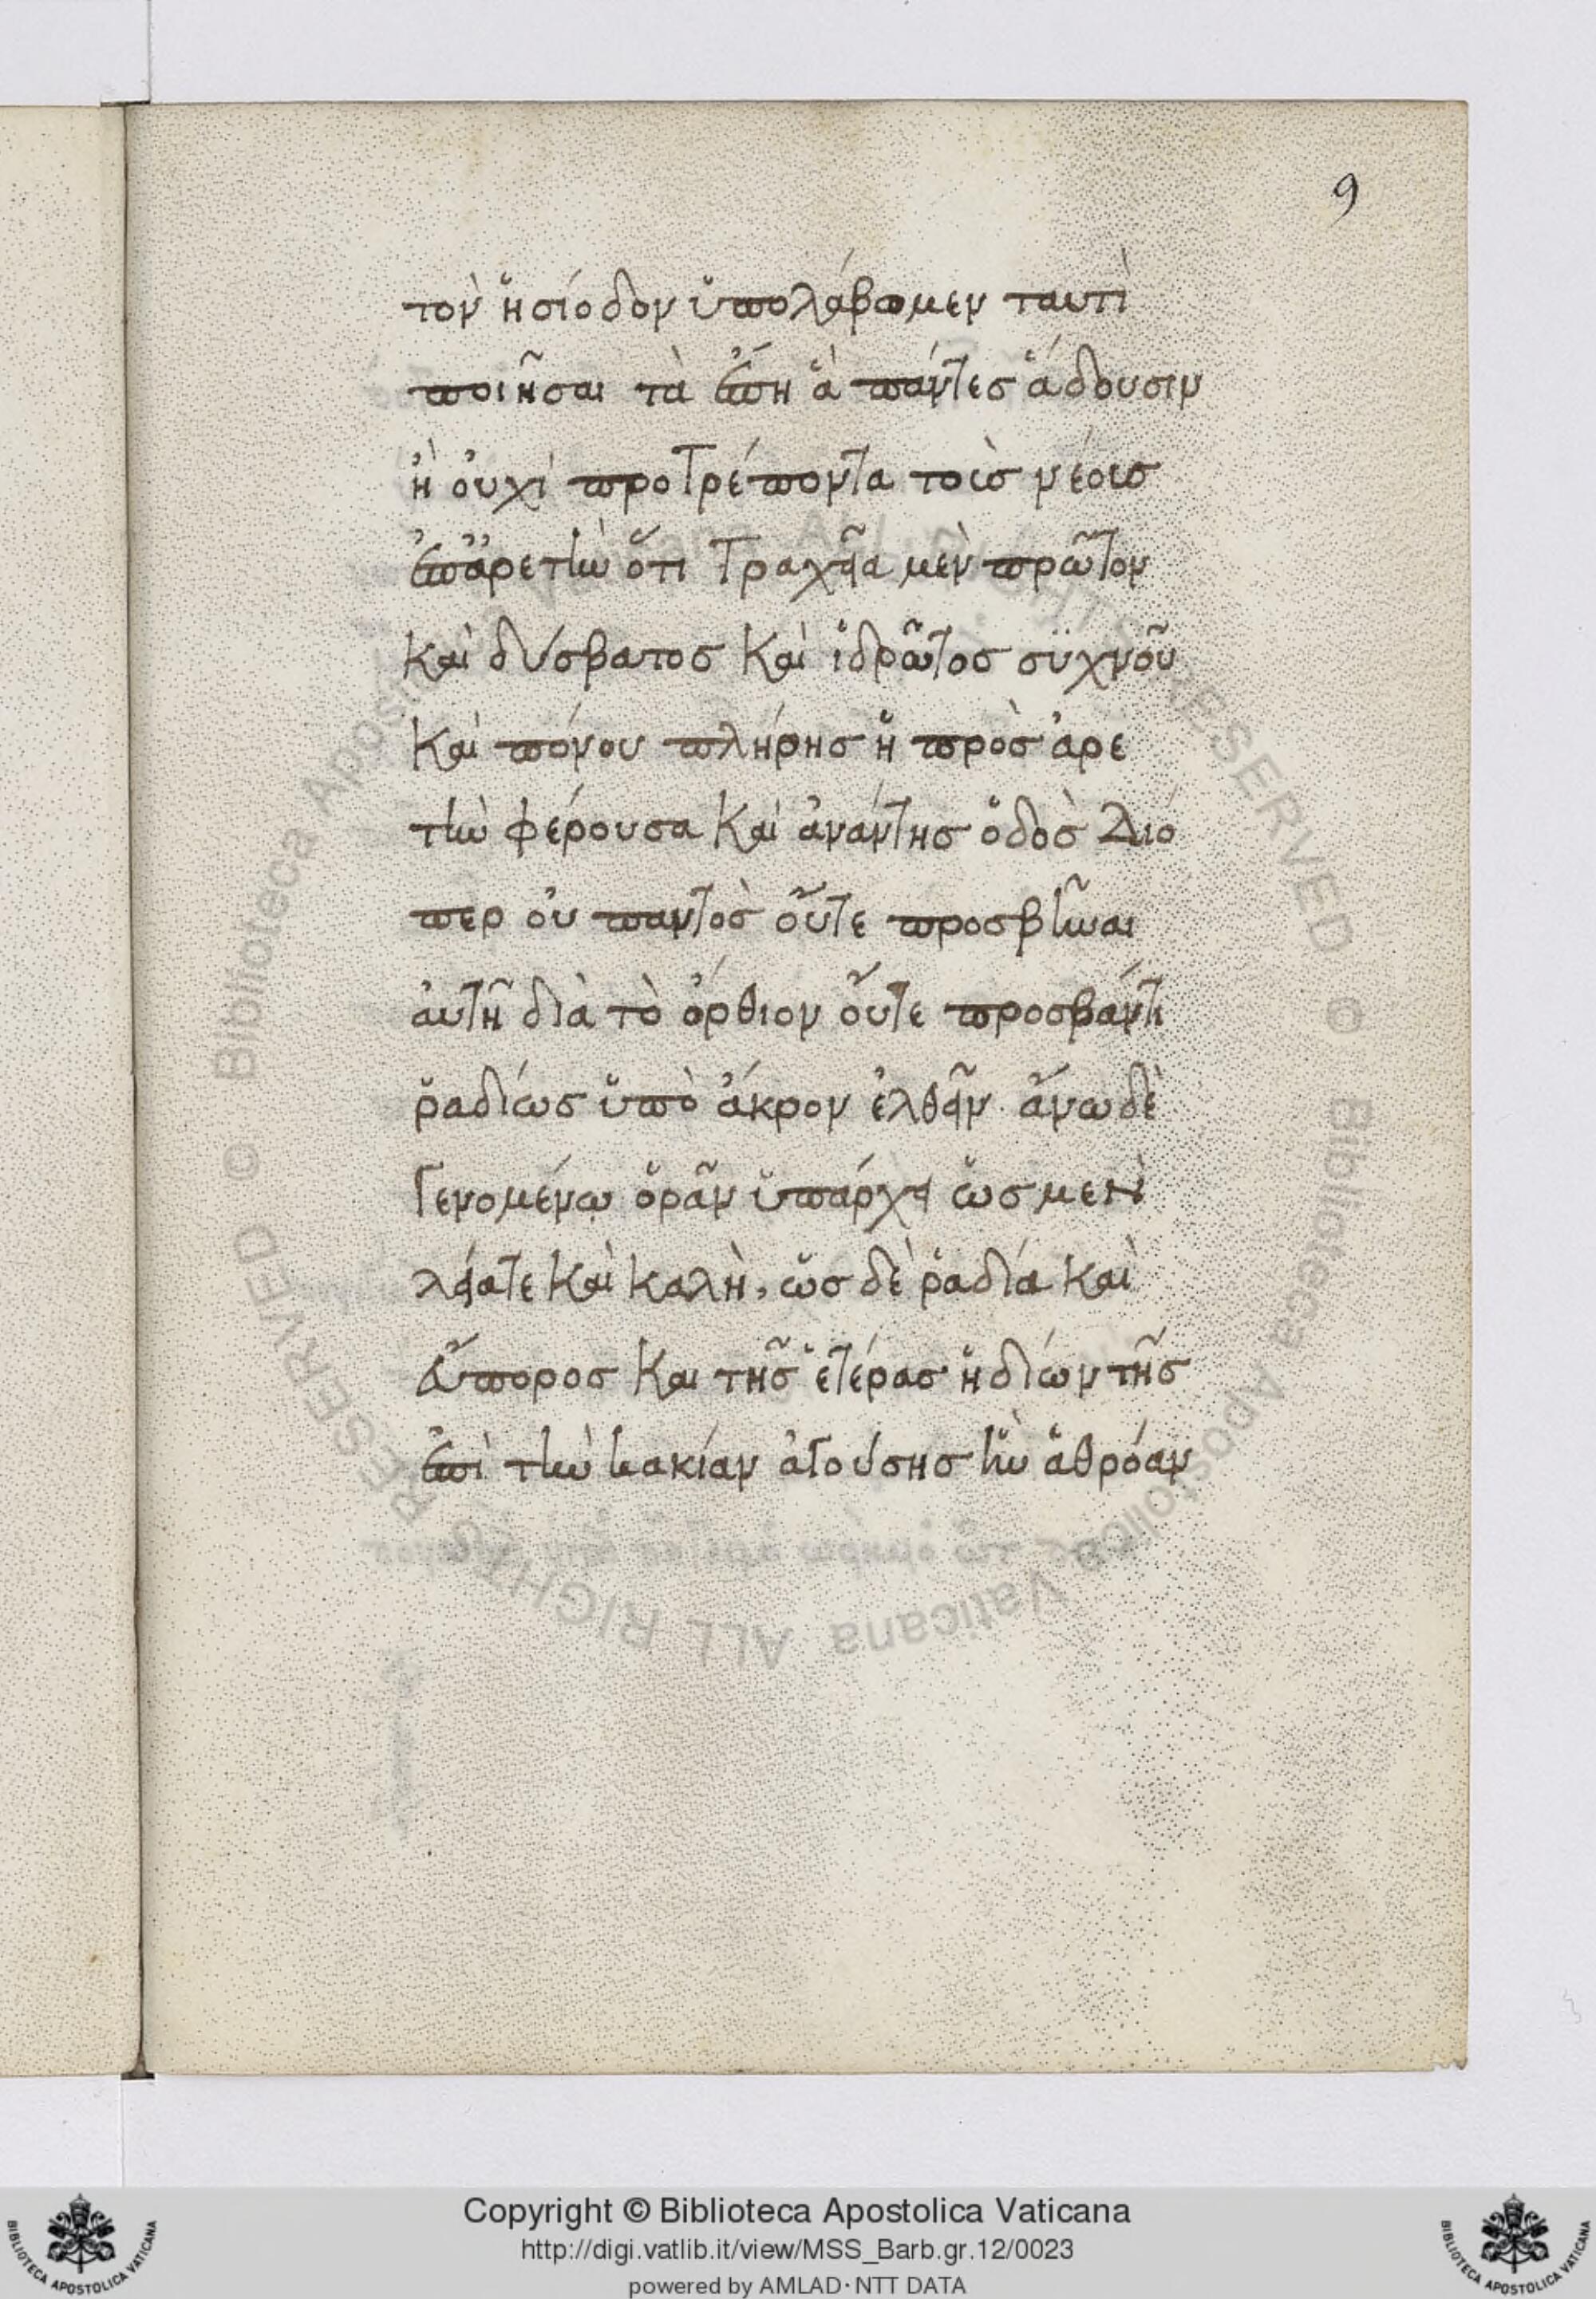 9
τὸν ἡσίοδον ὑπολάβωμεν ταυτὶ
ποιῆσαι τὰ ἔπη ἃ πάντες ἄδουσιν
ἢ οὐχὶ προτρέποντα τοὺσ νέουσ
ἐπ᾽ ἀρετὴν ὅτι τραχεῖα μὲν πρῶτον
καὶ δύσβατοσ καὶ ἱδρῶτοσ συχνοῦ
καὶ πόνου πλήρησ ἡ πρὸσ ἀρε
τὴν φέρουσα καὶ ἀνάντησ ὁδὸσ Διό
περ οὐ παντὸσ οὔτε προσβῆναι
αὐτῆ διὰ τὸ ὄρθιον οὔτε προσβάντι
ῥαδίωσ ὑπὸ ἄκρον ἐλθεῖν. ἄνω δὲ
γενομένω ὁρᾶν ὑπάρχει ὡσ μὲν
λεία τε καὶ καλὴ, ὡσ δὲ ῥαδία καὶ
εὔποροσ και τῆσ ἑτέρασ ἡδίων τῆσ
ἐπὶ τὴν κακίαν ἀγούσησ ἣν ἁθρόαν
Copyright © Biblioteca Apostolica Vaticana
http://digi.vatlib.it/view/MSS_Barb.gr.12/0023
powered by AMLAD·NTT DATA